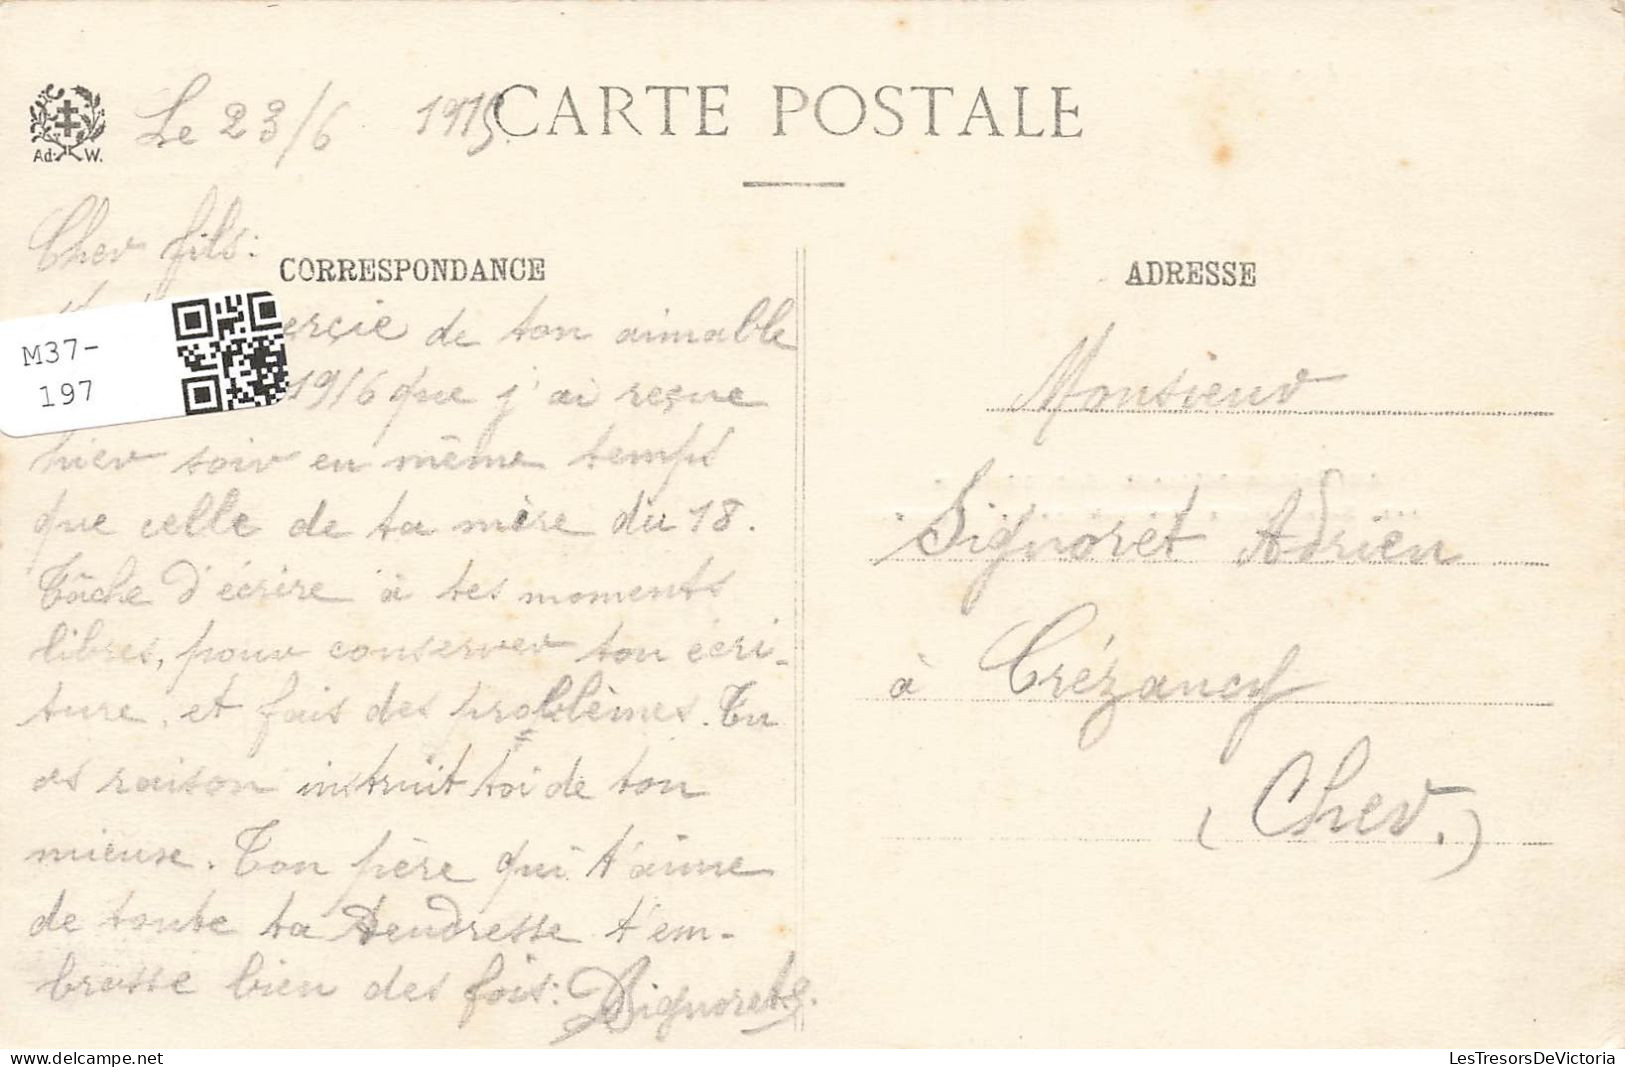 Ad. W.
Le 23/6 1915.
CARTE POSTALE
Cher fils:
CORRESPONDANCE
ercie de ton aimable
19/6 que j'ai reçue
hier soir en même temps
que celle de ta mère du 18.
Tâche d'écrire à tes moments
libres, pour conserver ton écri-
ture, et fais des problèmes. Tu
as raison instruit toi de ton
mieuse. Ton père qui t'aime
de toute ta tendresse t'em-
brasse bien des fois: Signoret
M37-
197
ADRESSE
Monsieur
Signoret Adrien
à Crézancy
(Cher.)
LesTresorsDeVictoria
fr.delcampe.net